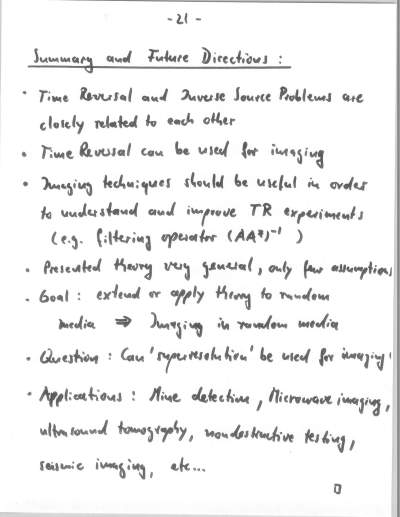 -21-
Summary and Future Directions :
· Time Reversal and Inverse Source Problems are
closely related to each other
· Time Reversal can be used for imaging
· Imaging techniques should be useful in order
to understand and improve TR experiments
(e.g. filtering operator (AA*)⁻¹ )
· Presented theory very general, only few assumptions
· Goal : extend or apply theory to random
media ⇒ Imaging in random media
· Question : Can 'superresolution' be used for imaging?
· Applications : Mine detection, Microwave imaging,
ultrasound tomography, nondestructive testing,
seismic imaging, etc...